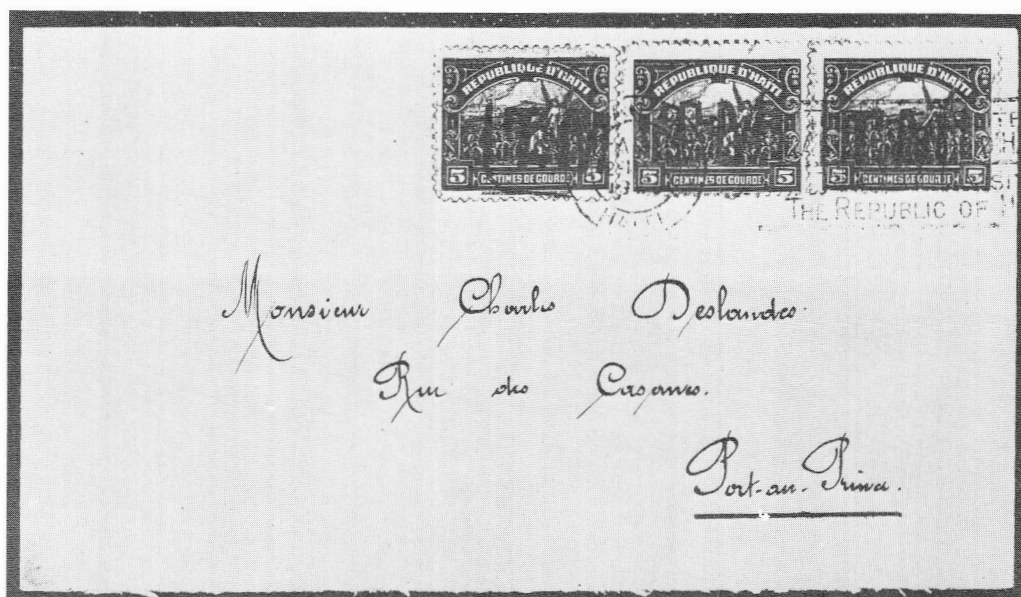 REPUBLIQUE D'HAITI REPUBLIQUE D'HAITI REPUBLIQUE D'HAITI
5 CENTIMES DE GOURDE 5 5 CENTIMES DE GOURDE 5 5 CENTIMES DE GOURDE 5
HAITI
THE REPUBLIC OF H
Monsieur Charles Deslandes.
Rue des Casernes.
Port-au-Prince.